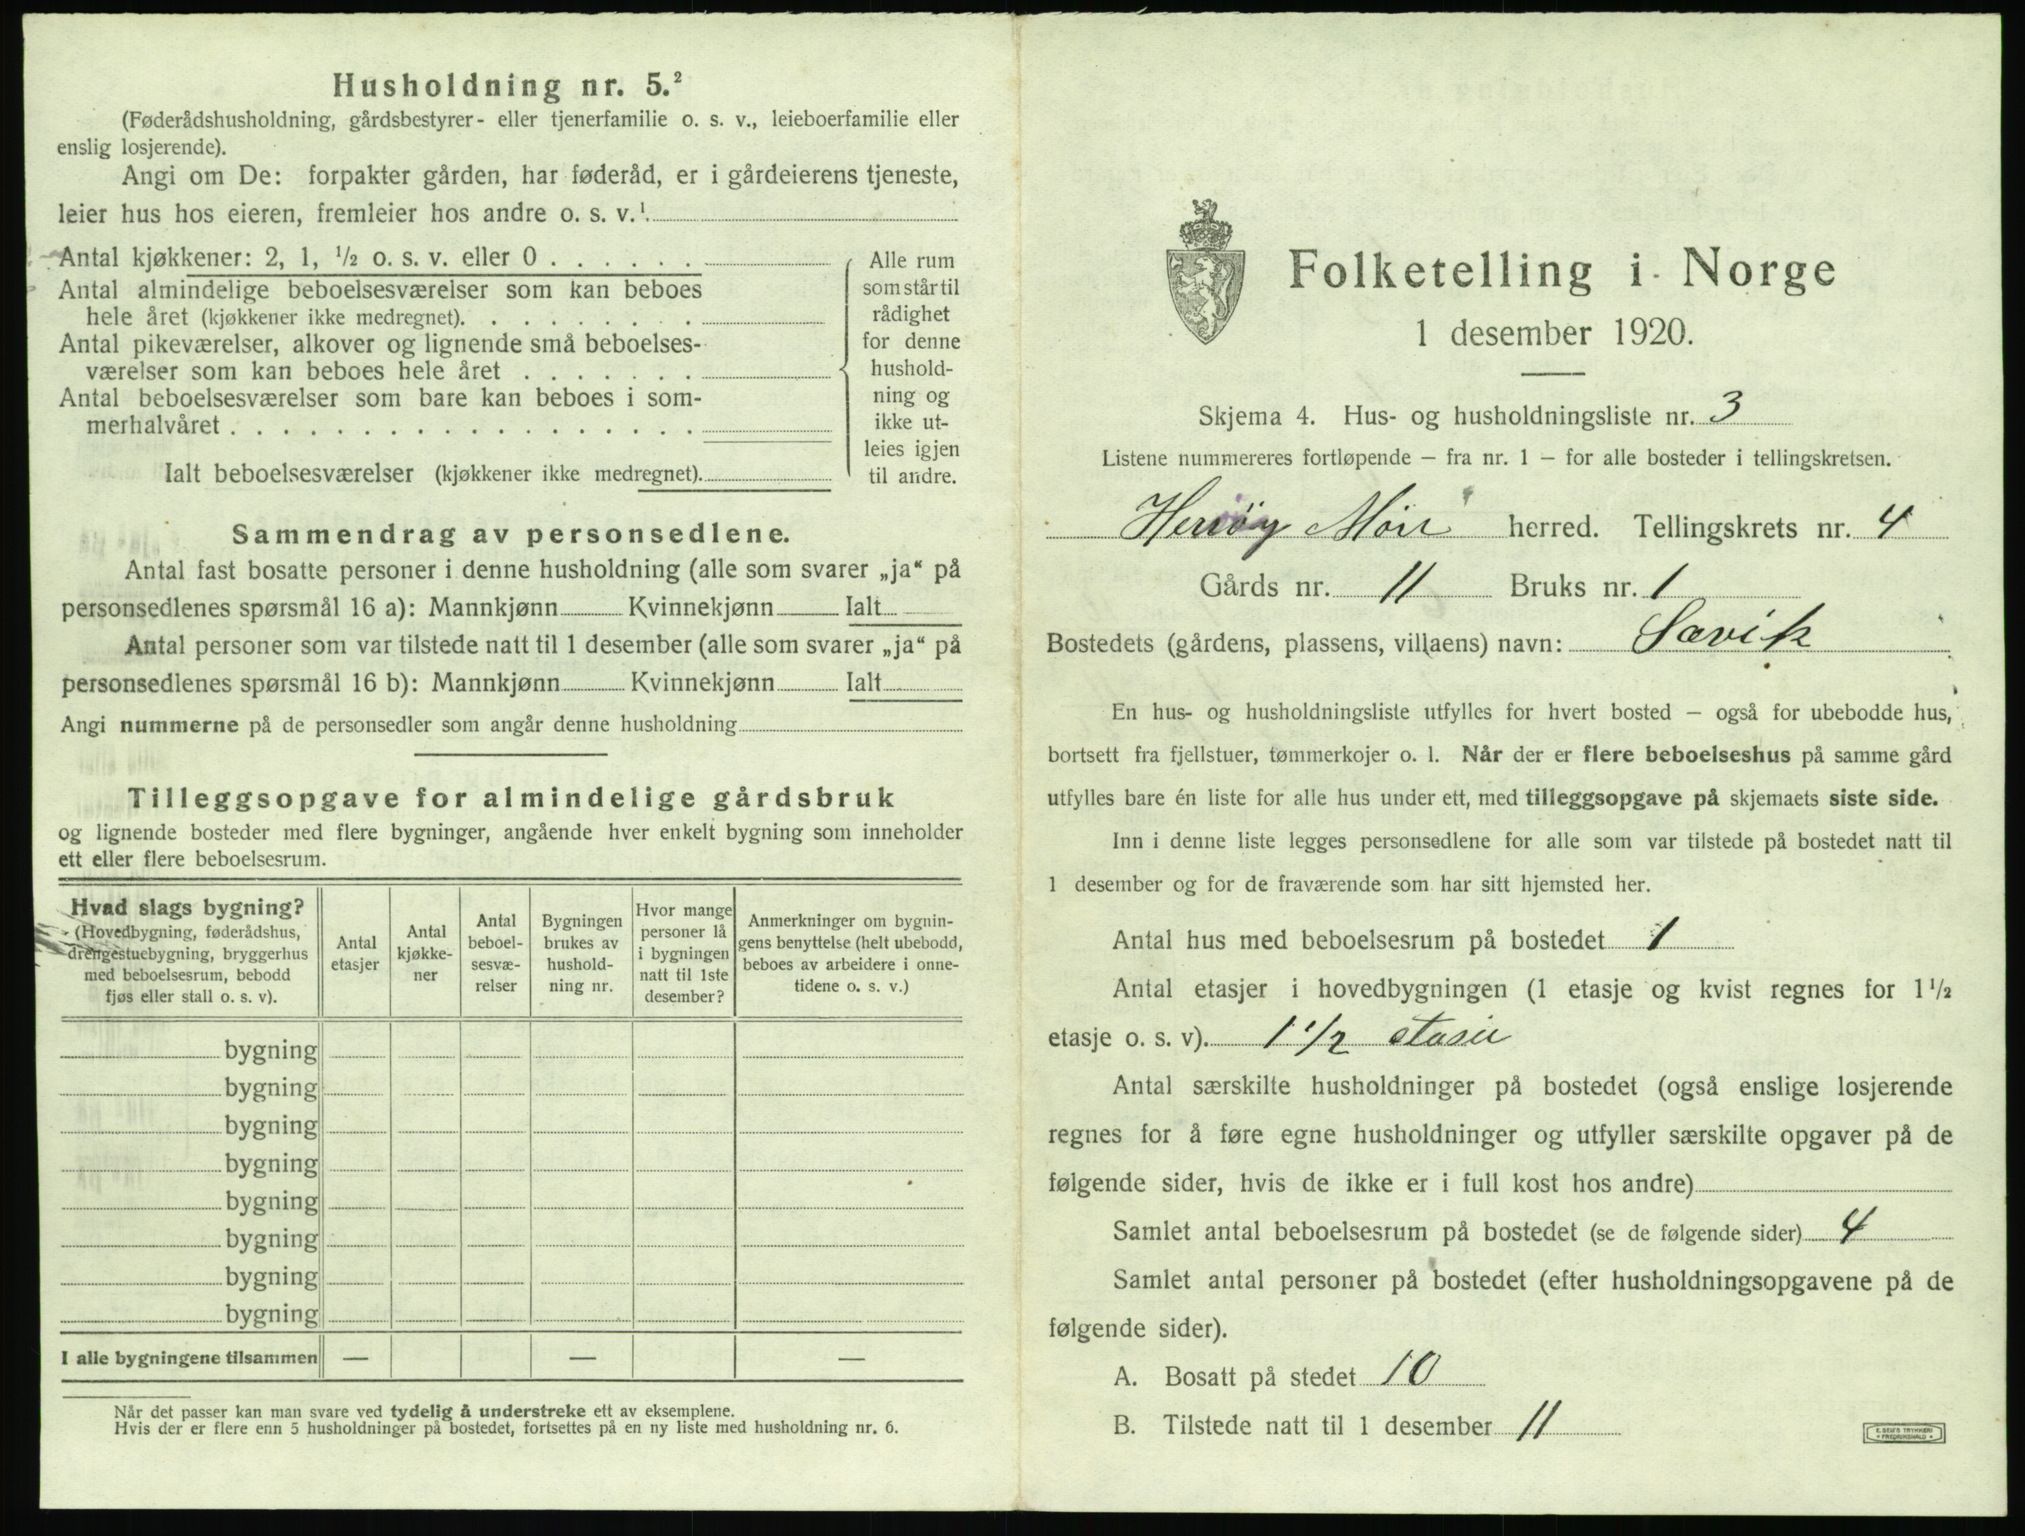 Husholdning nr. 5.²
(Føderådshusholdning, gårdsbestyrer- eller tjenerfamilie o. s. v., leieboerfamilie eller
enslig losjerende).
Angi om De: forpakter gården, har føderåd, er i gårdeierens tjeneste,
leier hus hos eieren, fremleier hos andre o. s. v.¹
Antal kjøkkener: 2, 1, ½ o. s. v. eller 0 . . . . . .
Antal almindelige beboelsesværelser som kan beboes
hele året (kjøkkener ikke medregnet). . . . . . . . .
Antal pikeværelser, alkover og lignende små beboelses-
værelser som kan beboes hele året . . . . . . .
Antal beboelsesværelser som bare kan beboes i som-
merhalvåret . . . . . . . . . . . . . . . . . .
Ialt beboelsesværelser (kjøkkener ikke medregnet).
Alle rum
som står til
rådighet
for denne
hushold-
ning og
ikke ut-
leies igjen
til andre.
Sammendrag av personsedlene.
Antal fast bosatte personer i denne husholdning (alle som svarer „ja“ på
personsedlenes spørsmål 16 a): Mannkjønn Kvinnekjønn Ialt
Antal personer som var tilstede natt til 1 desember (alle som svarer „ja“ på
personsedlenes spørsmål 16 b): Mannkjønn Kvinnekjønn Ialt
Angi nummerne på de personsedler som angår denne husholdning
Tilleggsopgave for almindelige gårdsbruk
og lignende bosteder med flere bygninger, angående hver enkelt bygning som inneholder
ett eller flere beboelsesrum.
Hvad slags bygning?
(Hovedbygning, føderådshus,
drengestuebygning, bryggerhus
med beboelsesrum, bebodd
fjøs eller stall o. s. v).
Antal
etasjer
Antal
kjøkke-
ner
Antal
beboel-
sesvæ-
relser
Bygningen
brukes av
hushold-
ning nr.
Hvor mange
personer lå
i bygningen
natt til 1ste
desember?
Anmerkninger om bygnin-
gens benyttelse (helt ubebodd,
beboes av arbeidere i onne-
tidene o. s. v.)
bygning
bygning
bygning
bygning
bygning
bygning
bygning
bygning
I alle bygningene tilsammen — — —
Når det passer kan man svare ved tydelig å understreke ett av eksemplene.
Hvis der er flere enn 5 husholdninger på bostedet, fortsettes på en ny liste med husholdning nr. 6.
Folketelling i Norge
1 desember 1920.
Skjema 4. Hus- og husholdningsliste nr. 3
Listene nummereres fortløpende – fra nr. 1 – for alle bosteder i tellingskretsen.
Herøy Møre herred. Tellingskrets nr. 4
Gårds nr. 11 Bruks nr. 1
Bostedets (gårdens, plassens, villaens) navn: Sævik
En hus- og husholdningsliste utfylles for hvert bosted – også for ubebodde hus,
bortsett fra fjellstuer, tømmerkojer o. l. Når der er flere beboelseshus på samme gård
utfylles bare én liste for alle hus under ett, med tilleggsopgave på skjemaets siste side.
Inn i denne liste legges personsedlene for alle som var tilstede på bostedet natt til
1 desember og for de fraværende som har sitt hjemsted her.
Antal hus med beboelsesrum på bostedet 1
Antal etasjer i hovedbygningen (1 etasje og kvist regnes for 1½
etasje o. s. v). 1½ etasie
Antal særskilte husholdninger på bostedet (også enslige losjerende
regnes for å føre egne husholdninger og utfyller særskilte opgaver på de
følgende sider, hvis de ikke er i full kost hos andre)
Samlet antal beboelsesrum på bostedet (se de følgende sider) 4
Samlet antal personer på bostedet (efter husholdningsopgavene på de
følgende sider).
A. Bosatt på stedet 10
B. Tilstede natt til 1 desember 11
E. SEM'S TRYKKERI
FREDRIKSHALD